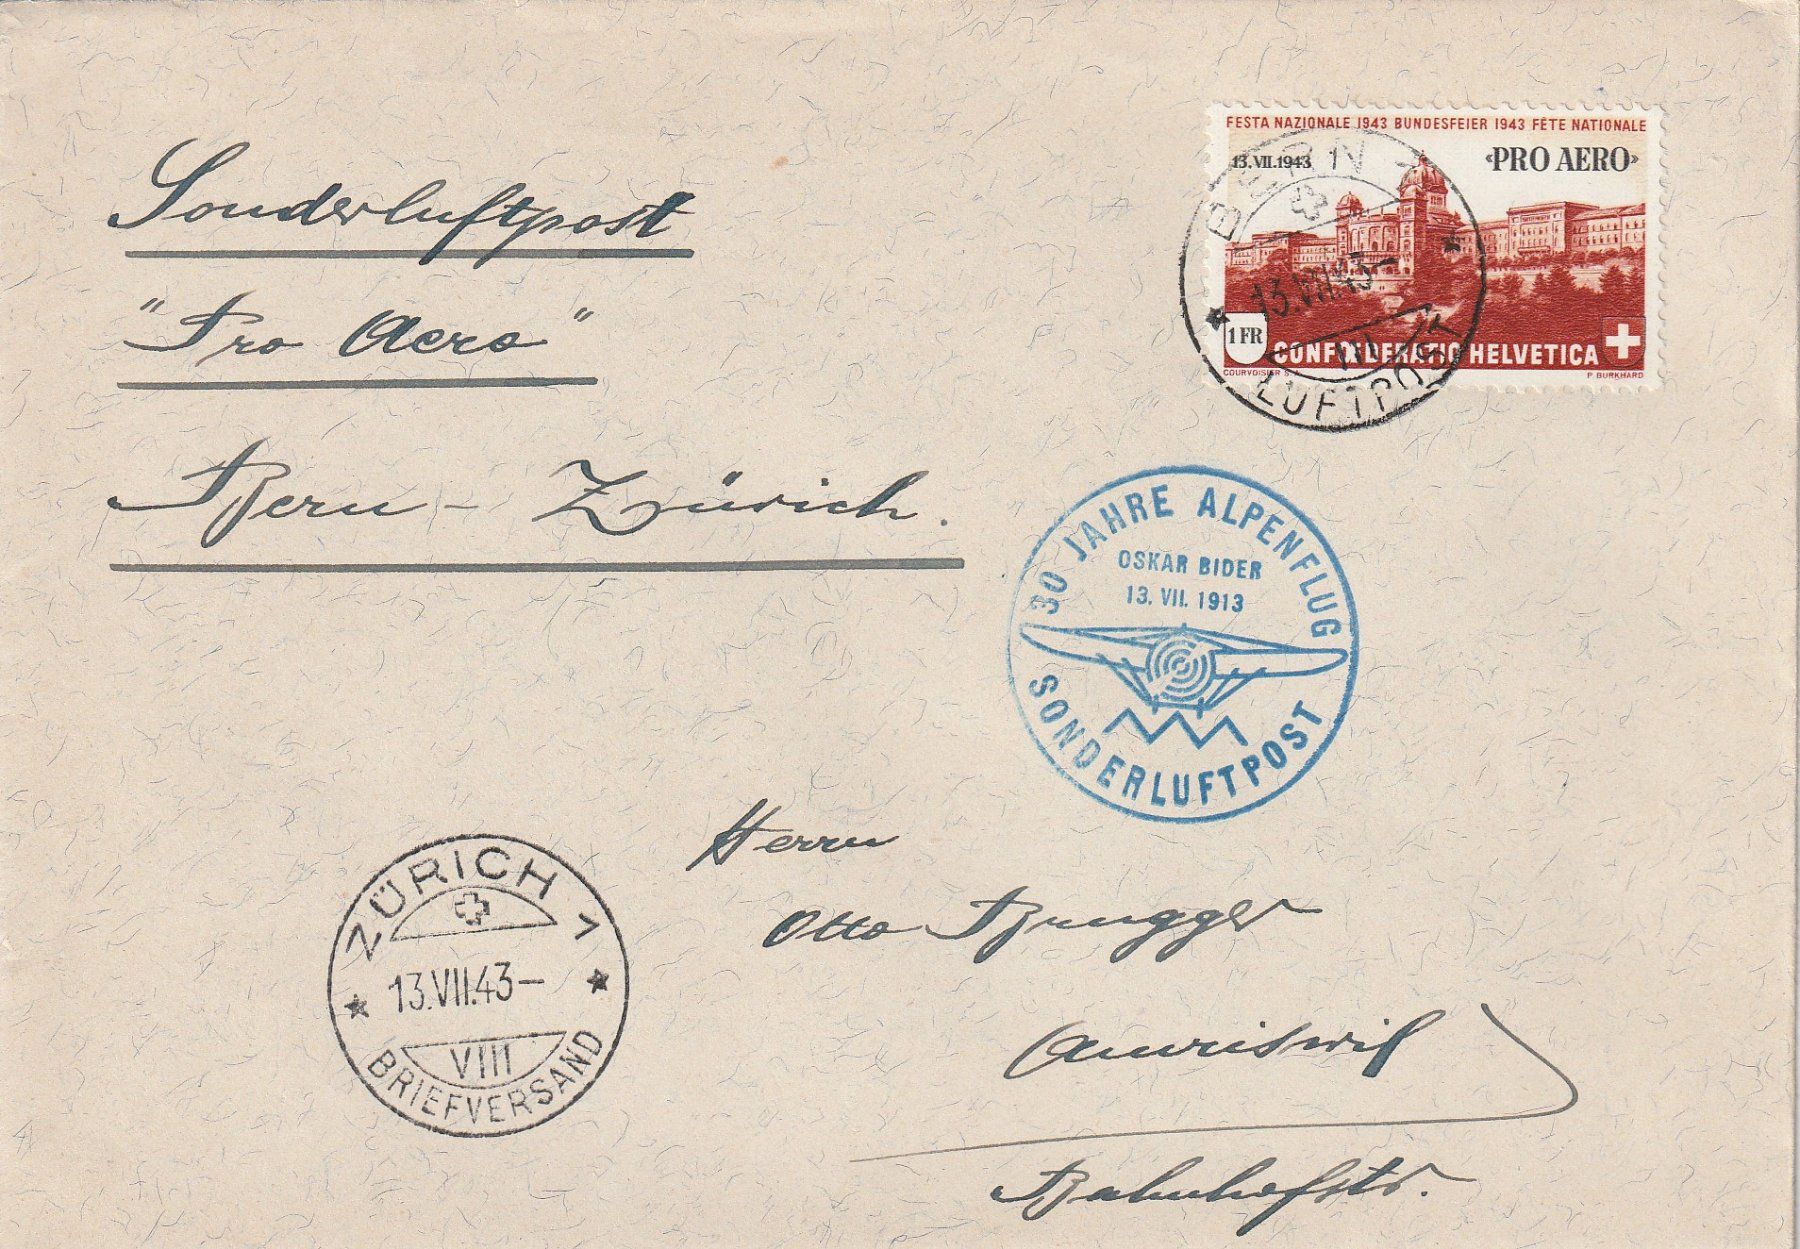 Sonderluftpost
"Pro Aero"
Bern - Zürich.
FESTA NAZIONALE 1943 BUNDESFEIER 1943 FÊTE NATIONALE
13.VII.1943
«PRO AERO»
1 FR
CONFOEDERATIO HELVETICA
COURVOISIER S.
P. BURKHARD
BERN 1
13.VII.43–
III
LUFTPOST
30 JAHRE ALPENFLUG
OSKAR BIDER
13. VII. 1913
SONDERLUFTPOST
ZÜRICH 1
13.VII.43–
VIII
BRIEFVERSAND
Herrn
Otto Brugger
Amriswil
Bahnhofstr.